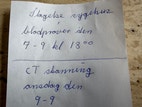 Slagelse sygehus
blodprøver den
7-9 kl 1800
CT skanning
onsdag den
9-9